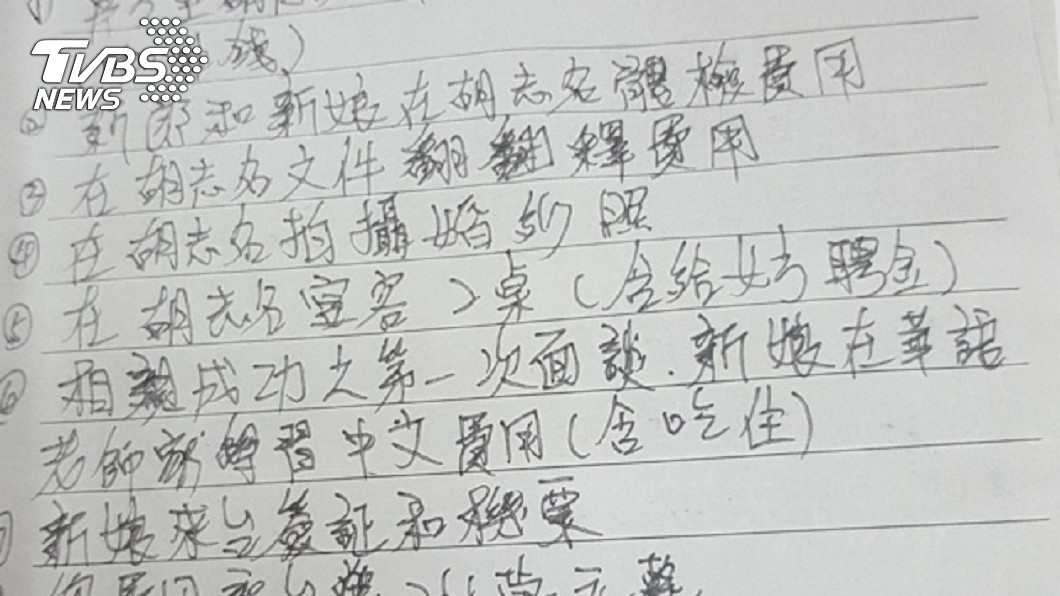 TVBS
NEWS
錢)
② 新郎和新娘在胡志名體檢費用
③ 在胡志名文件翻翻釋費用
④ 在胡志名拍攝婚紗照
⑤ 在胡志名宣客2桌(含給女方聘金)
⑥ 相親成功之第一次面談.新娘在華語
老師家學習中文費用(含吃住)
新娘來台簽証和機票